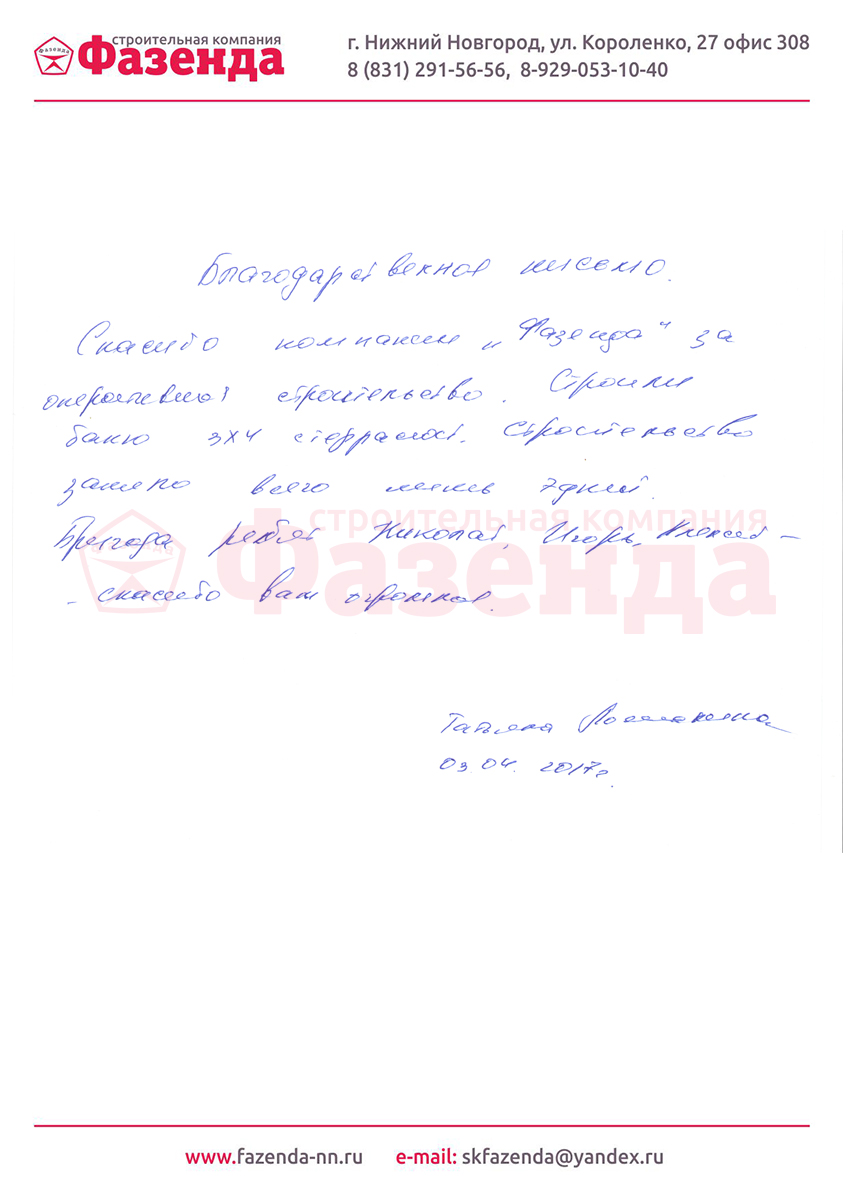 строительная компания
Фазенда
Фазенда
г. Нижний Новгород, ул. Короленко, 27 офис 308
8 (831) 291-56-56, 8-929-053-10-40
Благодарственное письмо.
Спасибо компании „Фазенда“ за
оперативное строительство. Строили
баню 3х4 с террасой. Строительство
заняло всего лишь 7 дней.
Бригада ребят Николай, Игорь, Алексей –
– спасибо вам огромное.
строительная компания
Фазенда
Фазенда
Татьяна
03.04. 2017г.
www.fazenda-nn.ru e-mail: skfazenda@yandex.ru